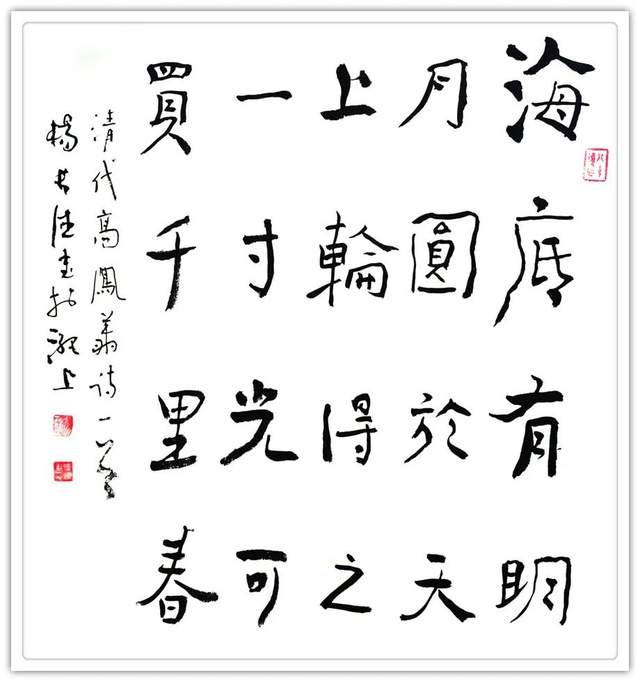 海底有明
月圓於天
上輪得之
一寸光可
買千里春
清代高鳳翰詩一首
楊書於上